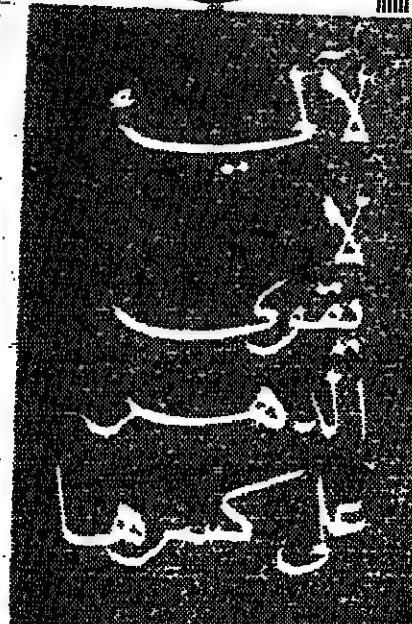 لآليء
لا
يقوى
الدهر
على كسرها